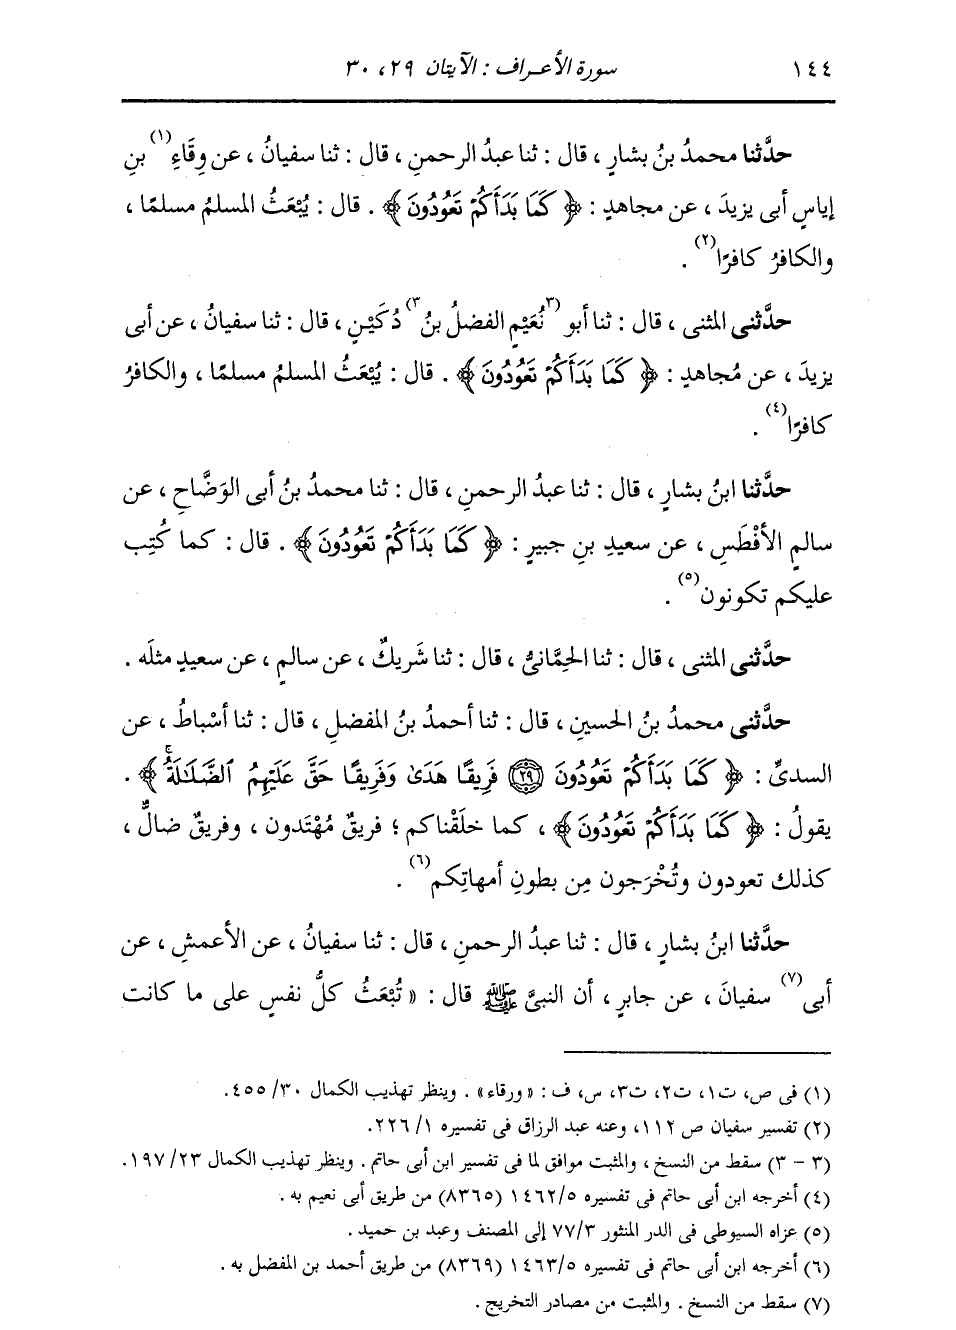 ١٤٤ سورة الأعراف : الآيتان ٢٩، ٣٠
حدَّثنا محمدُ بنُ بشارٍ ، قال : ثنا عبدُ الرحمنِ ، قال : ثنا سفيانُ ، عن وِقَاءِ(١) بنِ
إياسٍ أبى يزيدَ ، عن مجاهدٍ : ﴿ كَمَا بَدَأَكُمْ تَعُودُونَ ﴾ . قال : يُبْعَثُ المسلمُ مسلمًا ،
والكافرُ كافرًا(٢) .
حدَّثنى المثنى ، قال : ثنا أبو (٣نُعَيْمٍ الفضلُ بنُ٣) دُكَيْنٍ ، قال : ثنا سفيانُ ، عن أبى
يزيدَ ، عن مُجاهدٍ : ﴿ كَمَا بَدَأَكُمْ تَعُودُونَ ﴾ . قال : يُبْعَثُ المسلمُ مسلمًا ، والكافرُ
كافرًا(٤) .
حدَّثنا ابنُ بشارٍ ، قال : ثنا عبدُ الرحمنِ ، قال : ثنا محمدُ بنُ أبى الوَضَّاحِ ، عن
سالمٍ الأفْطَسِ ، عن سعيدِ بنِ جبيرٍ : ﴿ كَمَا بَدَأَكُمْ تَعُودُونَ ﴾ . قال : كما كُتِب
عليكم تكونون(٥) .
حدَّثنى المثنى ، قال : ثنا الحِمَّانىُّ ، قال : ثنا شَريكٌ ، عن سالمٍ ، عن سعيدٍ مثلَه .
حدَّثنى محمدُ بنُ الحسينِ ، قال : ثنا أحمدُ بنُ المفضلِ ، قال : ثنا أسْباطُ ، عن
السدىِّ : ﴿ كَمَا بَدَأَكُمْ تَعُودُونَ ۝٢٩ فَرِيقًا هَدَىٰ وَفَرِيقًا حَقَّ عَلَيْهِمُ ٱلضَّلَٰلَةُۚ ﴾ .
يقولُ : ﴿ كَمَا بَدَأَكُمْ تَعُودُونَ ﴾ ، كما خلَقْناكم ؛ فريقٌ مُهْتَدون ، وفريقٌ ضالٌّ ،
كذلك تعودون وتُخْرَجون مِن بطونِ أمهاتِكم(٦) .
حدَّثنا ابنُ بشارٍ ، قال : ثنا عبدُ الرحمنِ ، قال : ثنا سفيانُ ، عن الأعمشِ ، عن
أبى(٧) سفيانَ ، عن جابرٍ ، أن النبىَّ ﷺ قال : « تُبْعَثُ كلُّ نفسٍ على ما كانت
(١) فى ص، ت١، ت٢، ت٣، س، ف : « ورقاء» . وينظر تهذيب الكمال ٣٠/ ٤٥٥.
(٢) تفسير سفيان ص ١١٢، وعنه عبد الرزاق فى تفسيره ١/ ٢٢٦.
(٣ - ٣) سقط من النسخ ، والمثبت موافق لما فى تفسير ابن أبى حاتم . وينظر تهذيب الكمال ٢٣/ ١٩٧.
(٤) أخرجه ابن أبى حاتم فى تفسيره ١٤٦٢/٥ (٨٣٦٥) من طريق أبى نعيم به .
(٥) عزاه السيوطى فى الدر المنثور ٧٧/٣ إلى المصنف وعبد بن حميد .
(٦) أخرجه ابن أبى حاتم فى تفسيره ١٤٦٣/٥ (٨٣٦٩) من طريق أحمد بن المفضل به .
(٧) سقط من النسخ . والمثبت من مصادر التخريج .